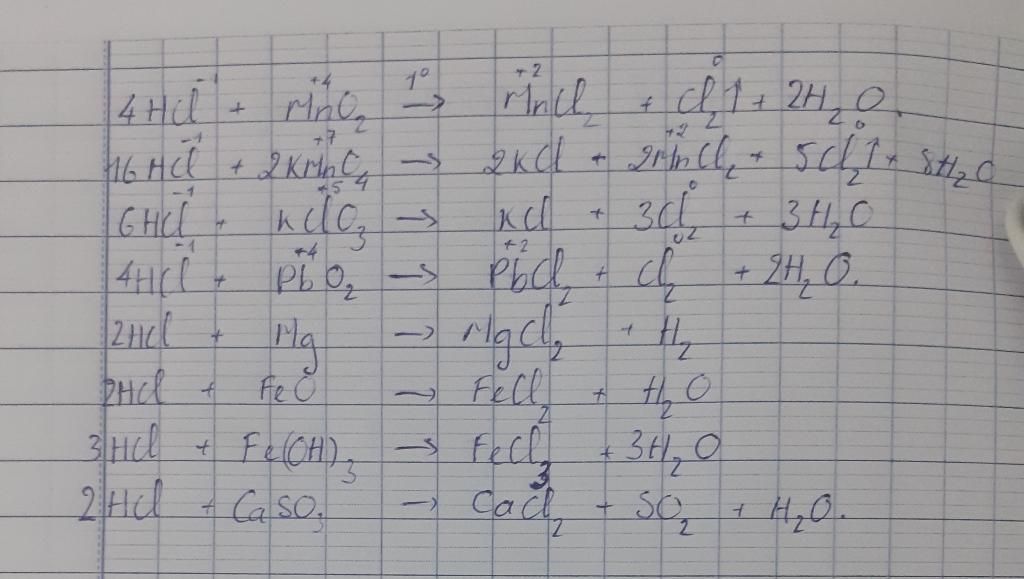 4HCl⁻¹ + Mn⁺⁴O₂ →(t°) Mn⁺²Cl₂ + Cl₂⁰↑ + 2H₂O.
16HCl⁻¹ + 2KMn⁺⁷O₄ → 2KCl + 2Mn⁺²Cl₂ + 5Cl₂⁰↑ + 8H₂O
6HCl⁻¹ + KCl⁺⁵O₃ → KCl + 3Cl₂⁰ + 3H₂O
4HCl⁻¹ + Pb⁺⁴O₂ → Pb⁺²Cl₂ + Cl₂⁰ + 2H₂O.
2HCl + Mg → MgCl₂ + H₂
2HCl + FeO → FeCl₂ + H₂O
3HCl + Fe(OH)₃ → FeCl₃ + 3H₂O
2HCl + CaSO₃ → CaCl₂ + SO₂ + H₂O.